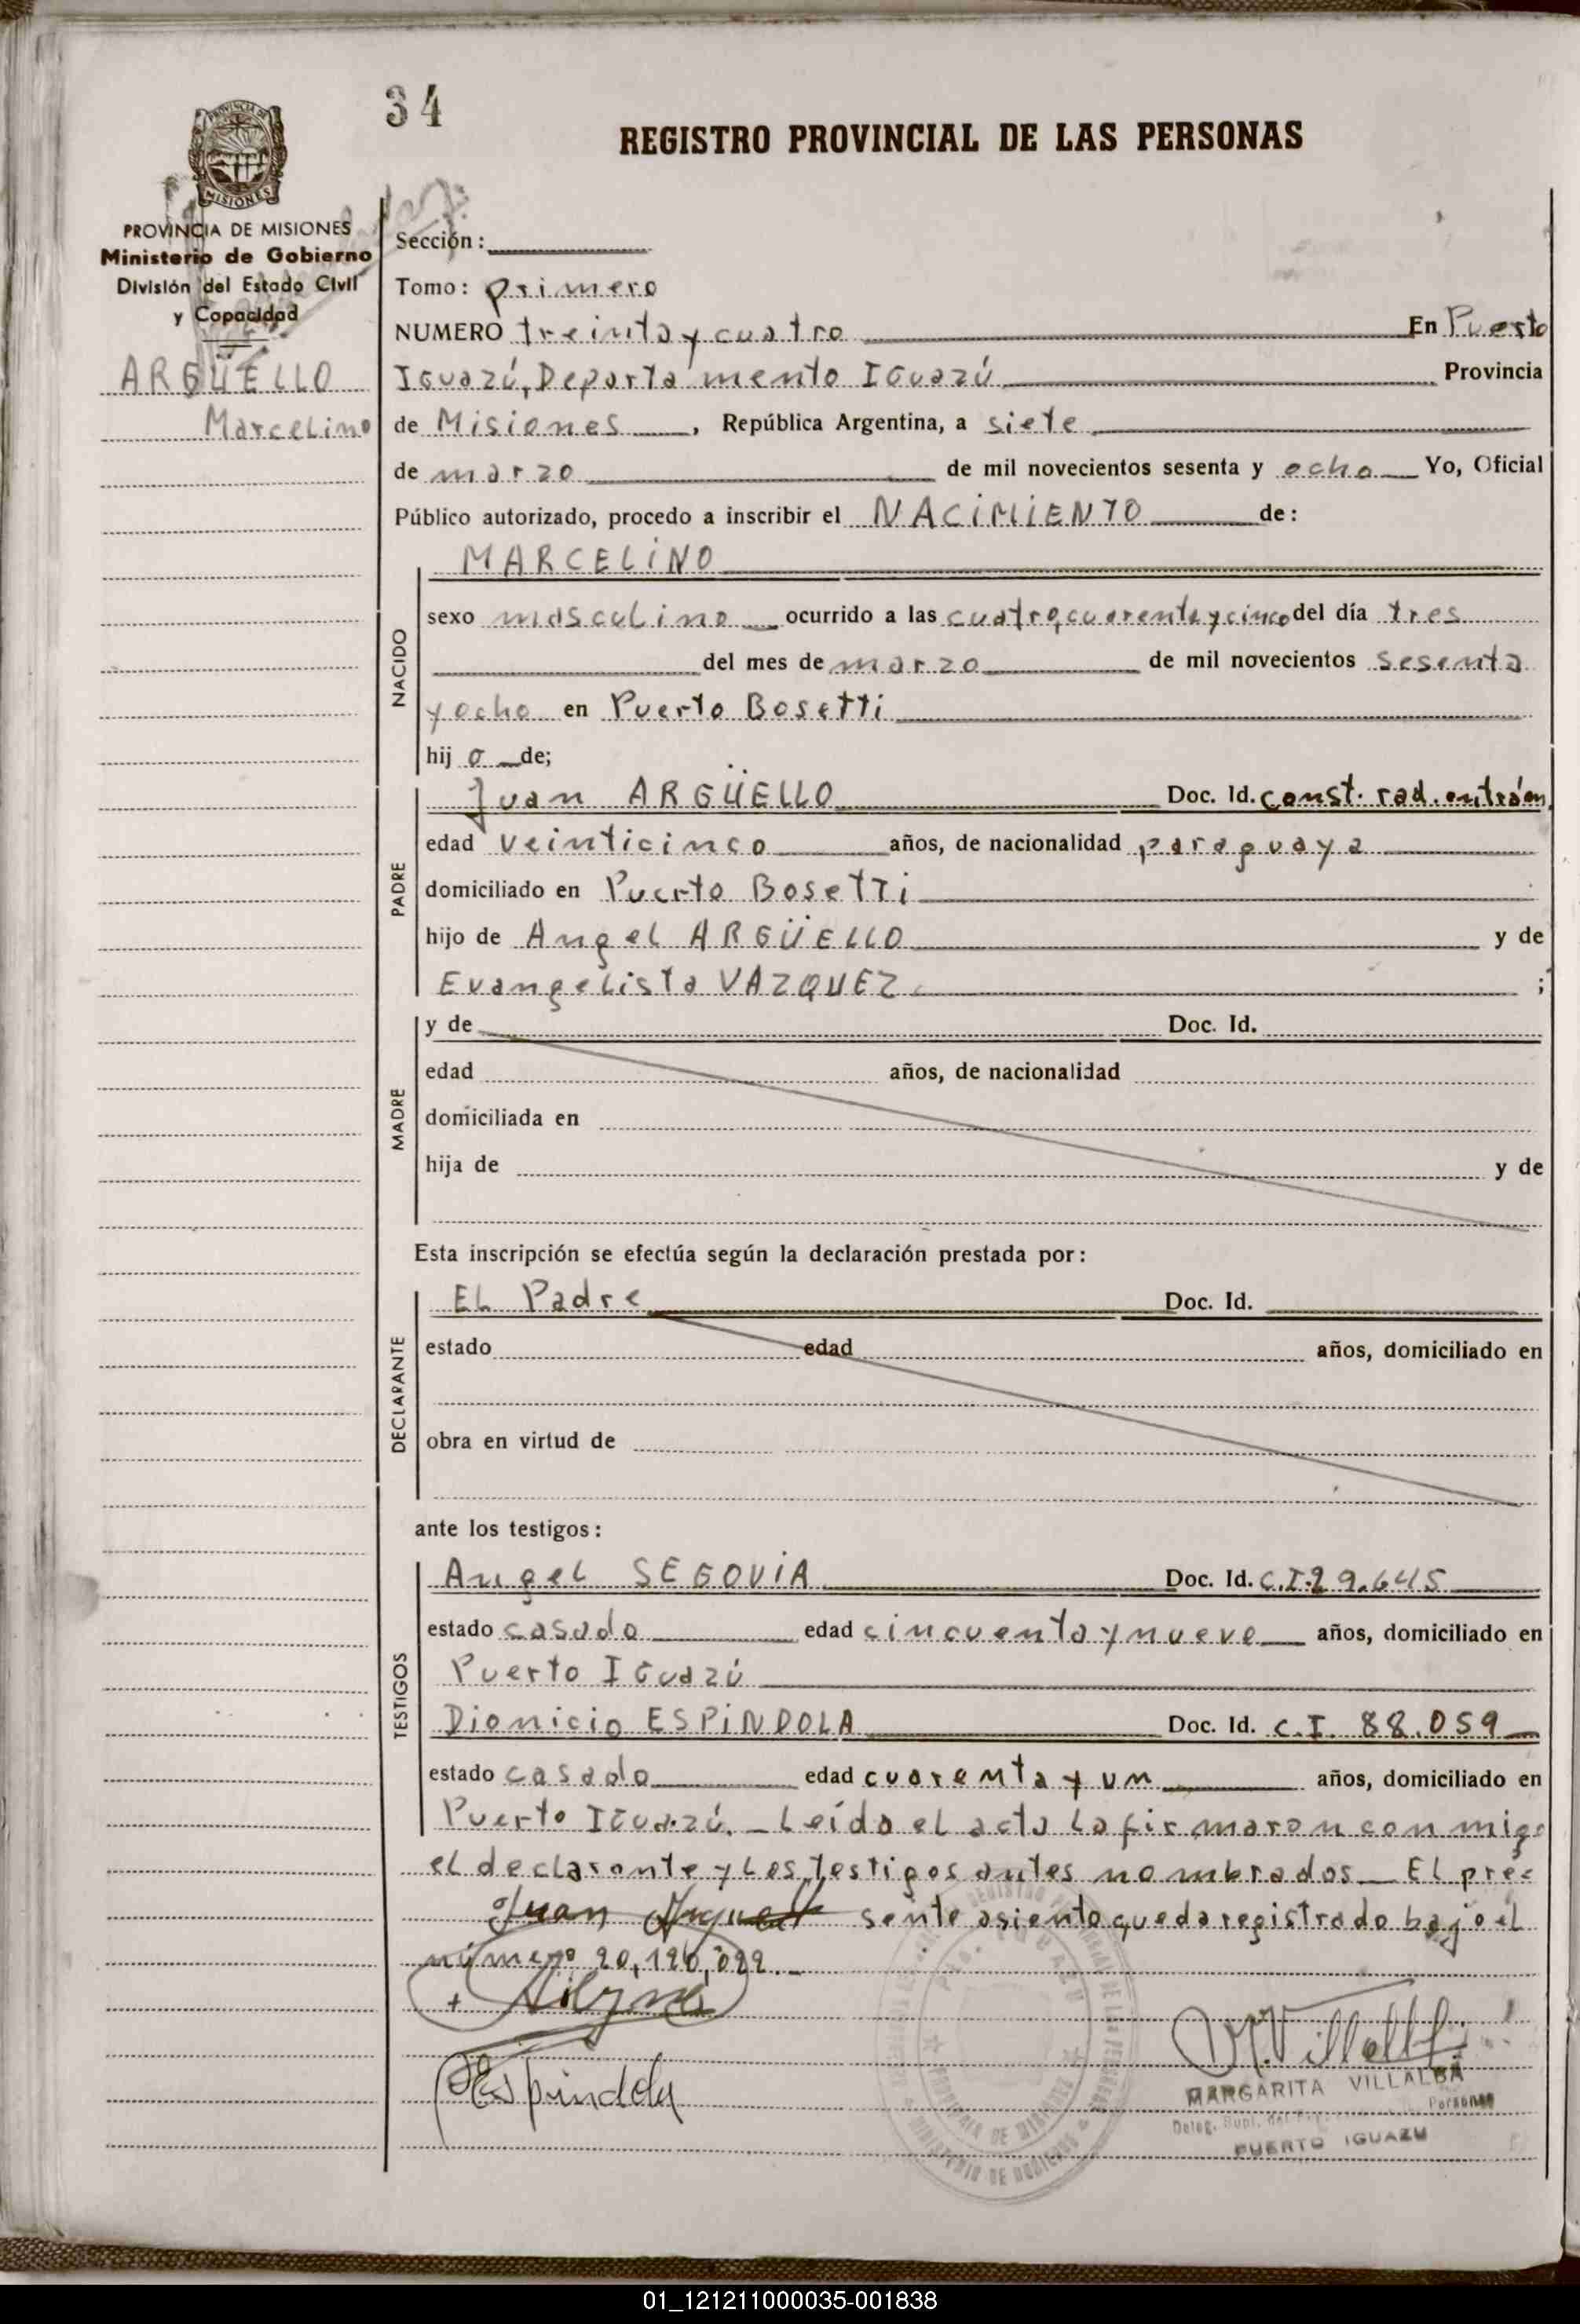 34
REGISTRO PROVINCIAL DE LAS PERSONAS
PROVINCIA DE
MISIONES
PROVINCIA DE MISIONES
Ministerio de Gobierno
División del Estado Civil
y Capacidad
ARGÜELLO
Marcelino
Sección:
Tomo: primero
NUMERO treinta y cuatro En Puerto
Iguazú, Departamento Iguazú Provincia
de Misiones, República Argentina, a siete
de marzo de mil novecientos sesenta y ocho Yo, Oficial
Público autorizado, procedo a inscribir el NACIMIENTO de:
NACIDO
MARCELINO
sexo masculino ocurrido a las cuatro, cuarenta y cinco del día tres
del mes de marzo de mil novecientos sesenta
y ocho en Puerto Bosetti
hij o de;
PADRE
Juan ARGÜELLO Doc. Id. const. rad. en trám.
edad veinticinco años, de nacionalidad paraguaya
domiciliado en Puerto Bosetti
hijo de Angel ARGÜELLO y de
Evangelista VAZQUEZ ;
MADRE
y de Doc. Id.
edad años, de nacionalidad
domiciliada en
hija de y de
Esta inscripción se efectúa según la declaración prestada por:
DECLARANTE
EL Padre Doc. Id.
estado edad años, domiciliado en
obra en virtud de
ante los testigos:
TESTIGOS
Angel SEGOVIA Doc. Id. C.I. 29.645
estado casado edad cincuenta y nueve años, domiciliado en
Puerto Iguazú
Dionicio ESPINDOLA Doc. Id. C.I. 88.059
estado casado edad cuarenta y un años, domiciliado en
Puerto Iguazú. _ Leída el acta la firmaron conmigo
el declarante y los testigos antes nombrados _ El pre=
Juan sente asiento queda registrado bajo el
número 20,190,022._
Espindola
M. Villalba
MARGARITA VILLALBA
Personas
PUERTO IGUAZU
PROVINCIA DE MISIONES
01_121211000035-001838